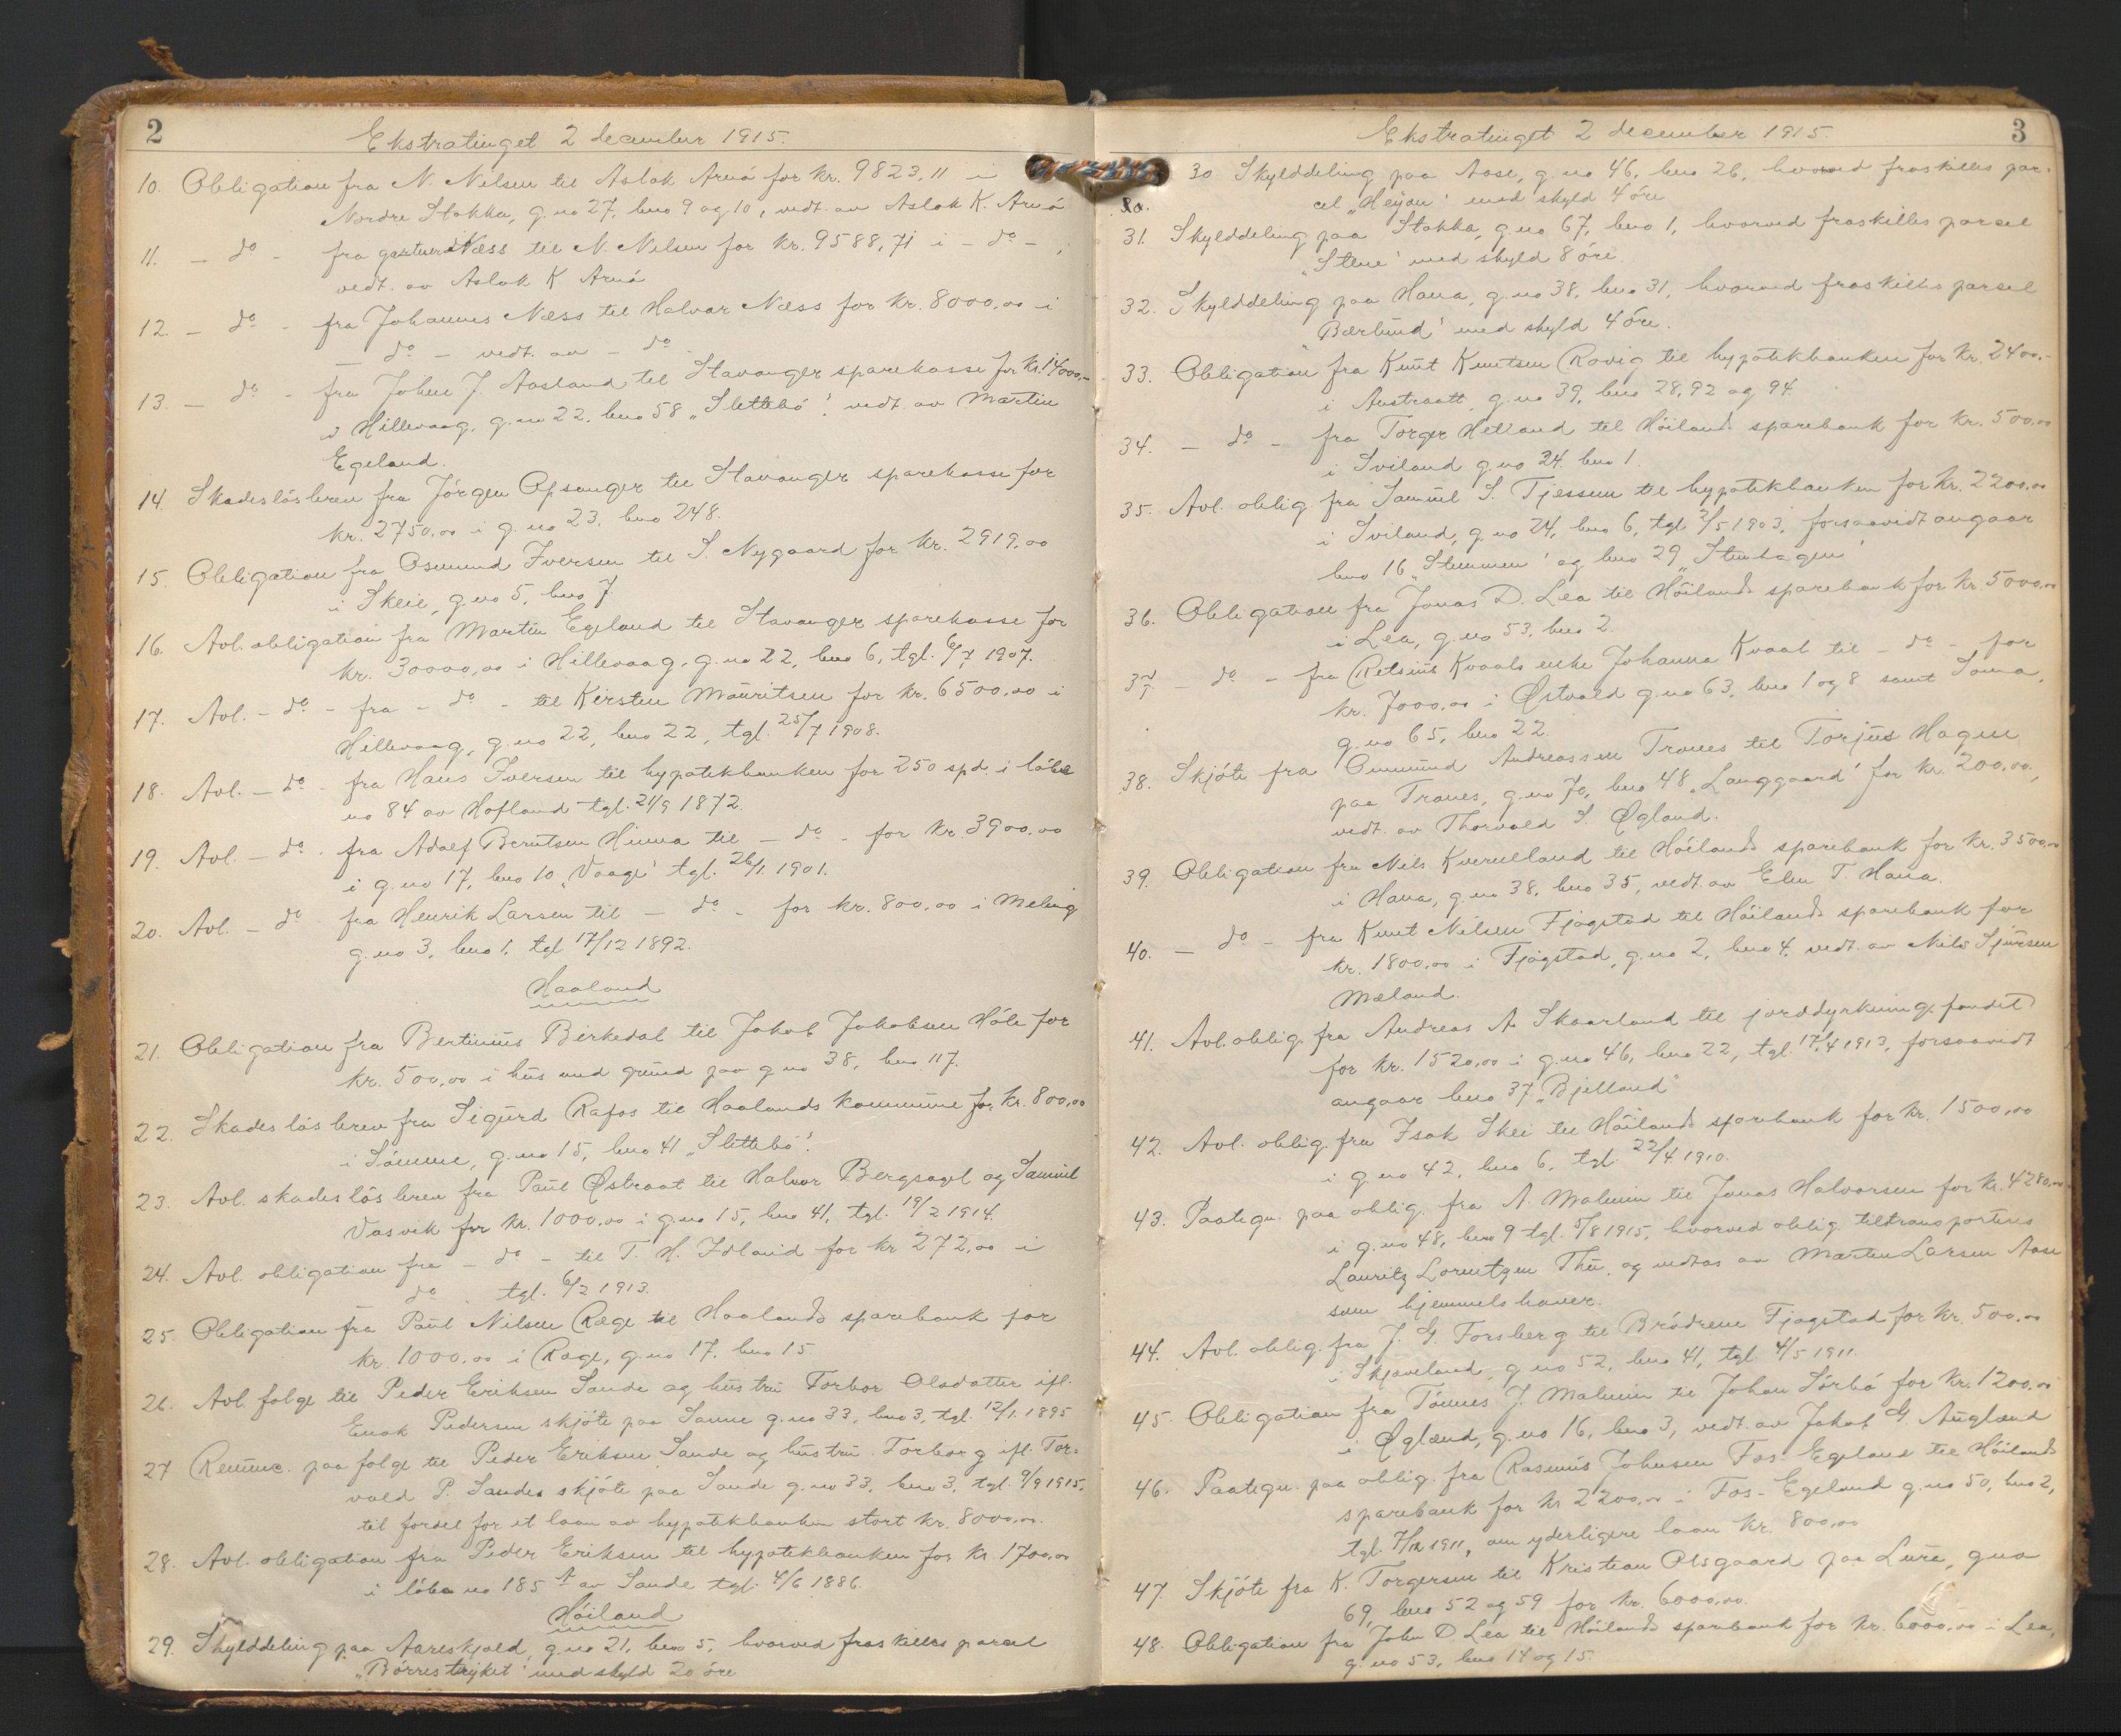 2
Ekstratinget 2 december 1915.
10. Obligation fra N. Nilsen til Aslak Arnö for kr. 9823,11 i
Nordre Stokka, g. no 27, bno 9 og 10, vedt. av Aslak K. Arnö
11. - do - fra gartner Næss til N. Nilsen for kr. 9588,71 i - do - ;
vedt. av Aslak K Arnö
12. - do - fra Johannes Næss til Halvar Næss for kr. 8000,00 i
- do - vedt. av - do -
13. - do - fra Johne J. Aasland til Stavanger sparekasse for kr. 14000,-
i Hillevaag, g. no 22, bno 58 „Slettebö", vedt. av Martin
Egeland.
14. Skadeslösbrev fra Jörgen Opsanger til Stavanger sparekasse for
kr. 2750,00 i g. no 23, bno 248.
15. Obligation fra Osmund Iversen til S. Nygaard for kr. 2919,00
i Skeie, g. no 5, bno 7.
16. Avl. obligation fra Martin Egeland til Stavanger sparekasse for
kr. 30000,00 i Hillevaag, g. no 22, bno 6, tgl. 6/7 1907.
17. Avl. - do - fra - do - til Kirsten Mauritsen for kr. 6500,00 i
Hillevaag, g. no 22, bno 22, tgl. 25/7 1908.
18. Avl. - do - fra Hans Iversen til hypotekbanken for 250 spd. i löbe
no 84 av Hofland tgl. 21/9 1872.
19. Avl. - do - fra Adolf Berntsen Hinna til - do - for kr. 3900,00
i g. no 17, bno 10 „Vaage" tgl. 26/1 1901.
20. Avl. - do - fra Henrik Larsen til - do - for kr. 800,00 i Meling
g. no 3, bno 1, tgl 17/12 1892.
Haaland
21. Obligation fra Bertinius Birkedal til Jakob Jakobsen Höle for
kr. 500,00 i hus med grund paa g no 38, bno 117.
22. Skadeslösbrev fra Sigurd Rafos til Haalands kommune for kr. 800,00
i Sömme, g. no 15, bno 41 „Slettebö".
23. Avl. skadeslösbrev fra Paul Østraat til Halvor Bergsagel og Samuel
Vasvik for kr. 1000,00 i g. no 15, bno 41, tgl. 19/2 1914.
24. Avl. obligation fra - do - til T. H. Idland for kr 272,00 i
- do - tgl. 6/2 1913.
25. Obligation fra Paul Nilsen Ræge til Haalands sparebank for
kr. 1000,00 i Ræge, g. no 17, bno 15.
26. Avl. folge til Peder Eriksen Sande og hustru Torbor Olsdatter ifl.
Enok Pedersen skjöte paa Sanne g. no 33, bno 3, tgl. 12/1 1895
27 Renunc. paa folge til Peder Eriksen Sande og hustru Torborg ifl. Tor=
vald P. Sandes skjöte paa Sande g. no 33, bno 3, tgl. 9/9 1915,
til fordel for et laan av hypotekbanken stort kr. 8000,00.
28. Avl. obligation fra Peder Eriksen til hypotekbanken for kr. 1700,00
i löbe no 185 A av Sande tgl. 4/6 1886.
Höiland
29. Skylddeling paa Aareskjold, g. no 21, bno 5, hvorved fraskilles parcel
„Börrestrijket" med skyld 20 öre
3
Ekstratinget 2 december 1915.
30 Skylddeling paa Aase, g. no 46, bno 26, hvorved fraskilles par-
cel „Heyan" med skyld 4 öre
31. Skylddeling paa Stokka, g. no 67, bno 1, hvorved fraskilles parcel
„Stene" med skyld 8 öre.
32. Skylddeling paa Hana, g. no 38, bno 31, hvorved fraskilles parsel
„Bærlund" med skyld 4 öre.
33. Obligation fra Knut Knutsen Rovig til hypotekbanken for kr. 2400,-
i Austraatt, g. no 39, bno 28, 92 og 94.
34. - do - fra Torger Hetland til Höilands sparebank for kr. 500,00
i Sviland g. no 24. bno 1.
35. Avl. oblig. fra Samuel S. Tjessem til hypotekbanken for kr. 2200,00
i Sviland, g. no 24, bno 6, tgl 2/5 1903, forsaavidt angaar
bno 16 „Stemmen" og bno 29 „Stenhagen"
36. Obligation fra Jonas D. Lea til Höilands sparebank for kr. 5000,00
i Lea, g. no 53, bno 2.
37 - do - fra Retsius Kvaals enke Johanna Kvaal til - do - for
kr. 7000,00 i Østvold g. no 63, bno 1 og 8 samt Soma,
g. no 65, bno 22.
38. Skjöte fra Ommund Andreassen Tranes til Torjus Hagen
paa Tranes, g. no 70, bno 48 „Langgaard" for kr. 200,00,
vedt. av Thorvald S. Øgland.
39. Obligation fra Nils Kvernelland til Höilands sparebank for kr. 3500,00
i Hana, g. no 38, bno 35, vedt. av Elen T. Hana.
40. - do - fra Knut Nilsen Fjogstad til Höilands sparebank for
kr. 1800,00 i Fjogstad, g. no 2, bno 4, vedt. av Nils Sjursen
Mæland.
41. Avl. oblig. fra Andreas A Skaarland til jorddyrkningsfondet
for kr. 1520,00 i g. no 46, bno 22, tgl. 17/4 1913, forsaavidt
angaar bno 37 „Bjelland"
42. Avl. oblig. fra Isak Skei til Höilands sparebank for kr. 1500,00
i g. no 42, bno 6, tgl. 22/4 1910.
43. Paategn. paa oblig. fra A. Malmin til Jonas Halvorsen for kr. 4280,00
i g. no 48, bno 9 tgl. 5/8 1915, hvorved oblig. tiltransporteres
Lauritz Lorentzen Thu, og vedtas av Marten Larsen Aase
som hjemmelshaver.
44. Avl. oblig. fra J. G. Forsberg til Brödrene Fjogstad for kr. 500,00
i Skjæveland, g. no 52, bno 41, tgl. 4/5 1911.
45. Obligation fra Tönnes J. Malmin til Johan Sörbö for kr. 1200,00
i Øglænd, g. no 16, bno 3, vedt. av Jakob G. Auglænd
46. Paategn. paa oblig. fra Rasmus Johnsen Fos-Egeland til Höilands
sparebank for kr 2200,00 i Fos-Egeland g. no 50, bno 2,
tgl. 7/12 1911, om yderligere laan kr. 800,00
47. Skjöte fra K. Torgersen til Kristian Olsgaard paa Lura, g no
69, bno 52 og 59 for kr. 6000,00.
48. Obligation fra John D. Lea til Höilands sparebank for kr. 6000,00 i Lea,
g. no 53, bno 14 og 15.